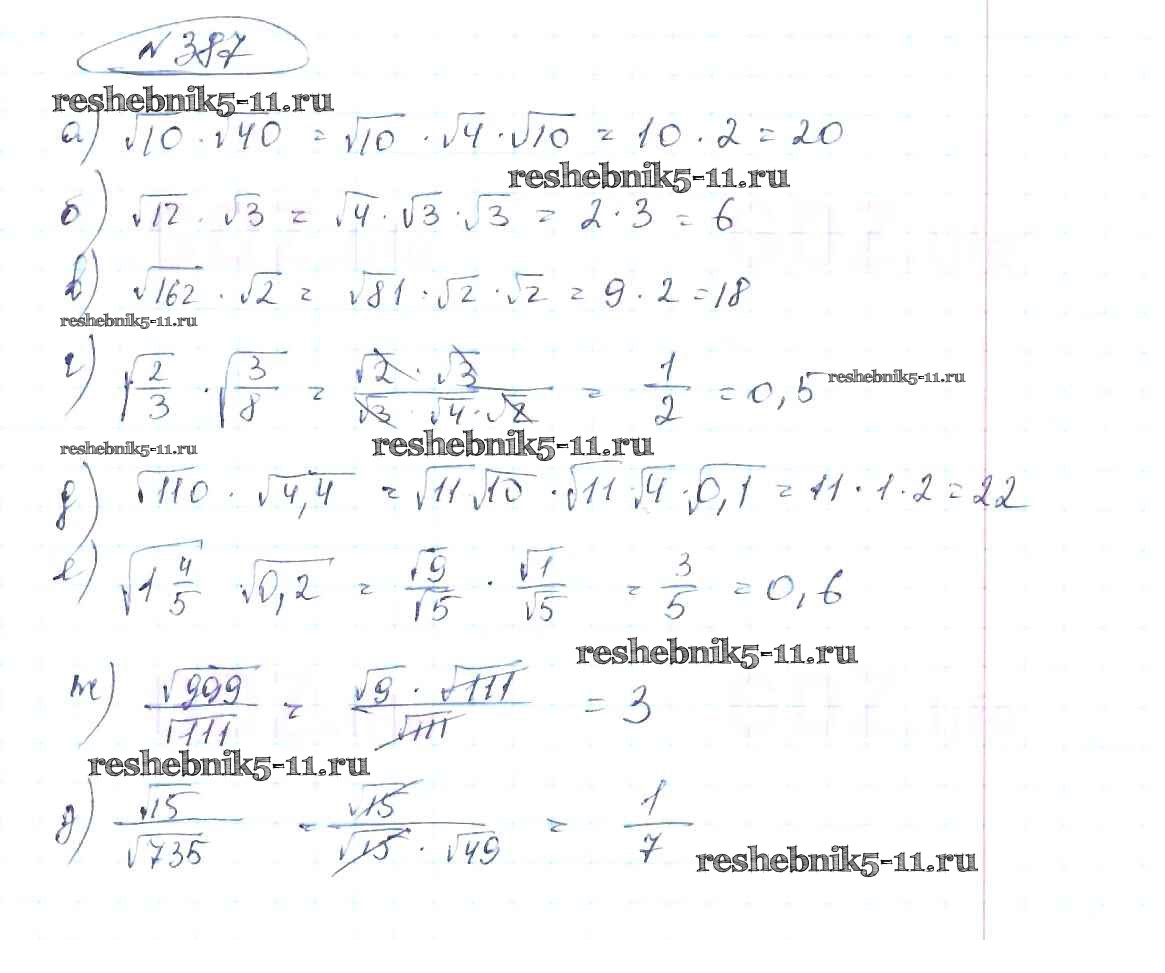 № 387
reshebnik5-11.ru
а) √10 · √40 = √10 · √4 · √10 = 10 · 2 = 20
reshebnik5-11.ru
б) √12 · √3 = √4 · √3 · √3 = 2 · 3 = 6
в) √162 · √2 = √81 · √2 · √2 = 9 · 2 = 18
reshebnik5-11.ru
г) √(2/3) · √(3/8) = (√2 · √3)/(√3 · √4 · √2) = 1/2 = 0,5
reshebnik5-11.ru
reshebnik5-11.ru
reshebnik5-11.ru
д) √110 · √4,4 = √11 √10 · √11 √4 · √0,1 = 11 · 1 · 2 = 22
е) √(1 4/5) √0,2 = √9/√5 · √1/√5 = 3/5 = 0,6
reshebnik5-11.ru
ж) √999/√111 = (√9 · √111)/√111 = 3
reshebnik5-11.ru
з) √15/√735 = √15/(√15 · √49) = 1/7
reshebnik5-11.ru